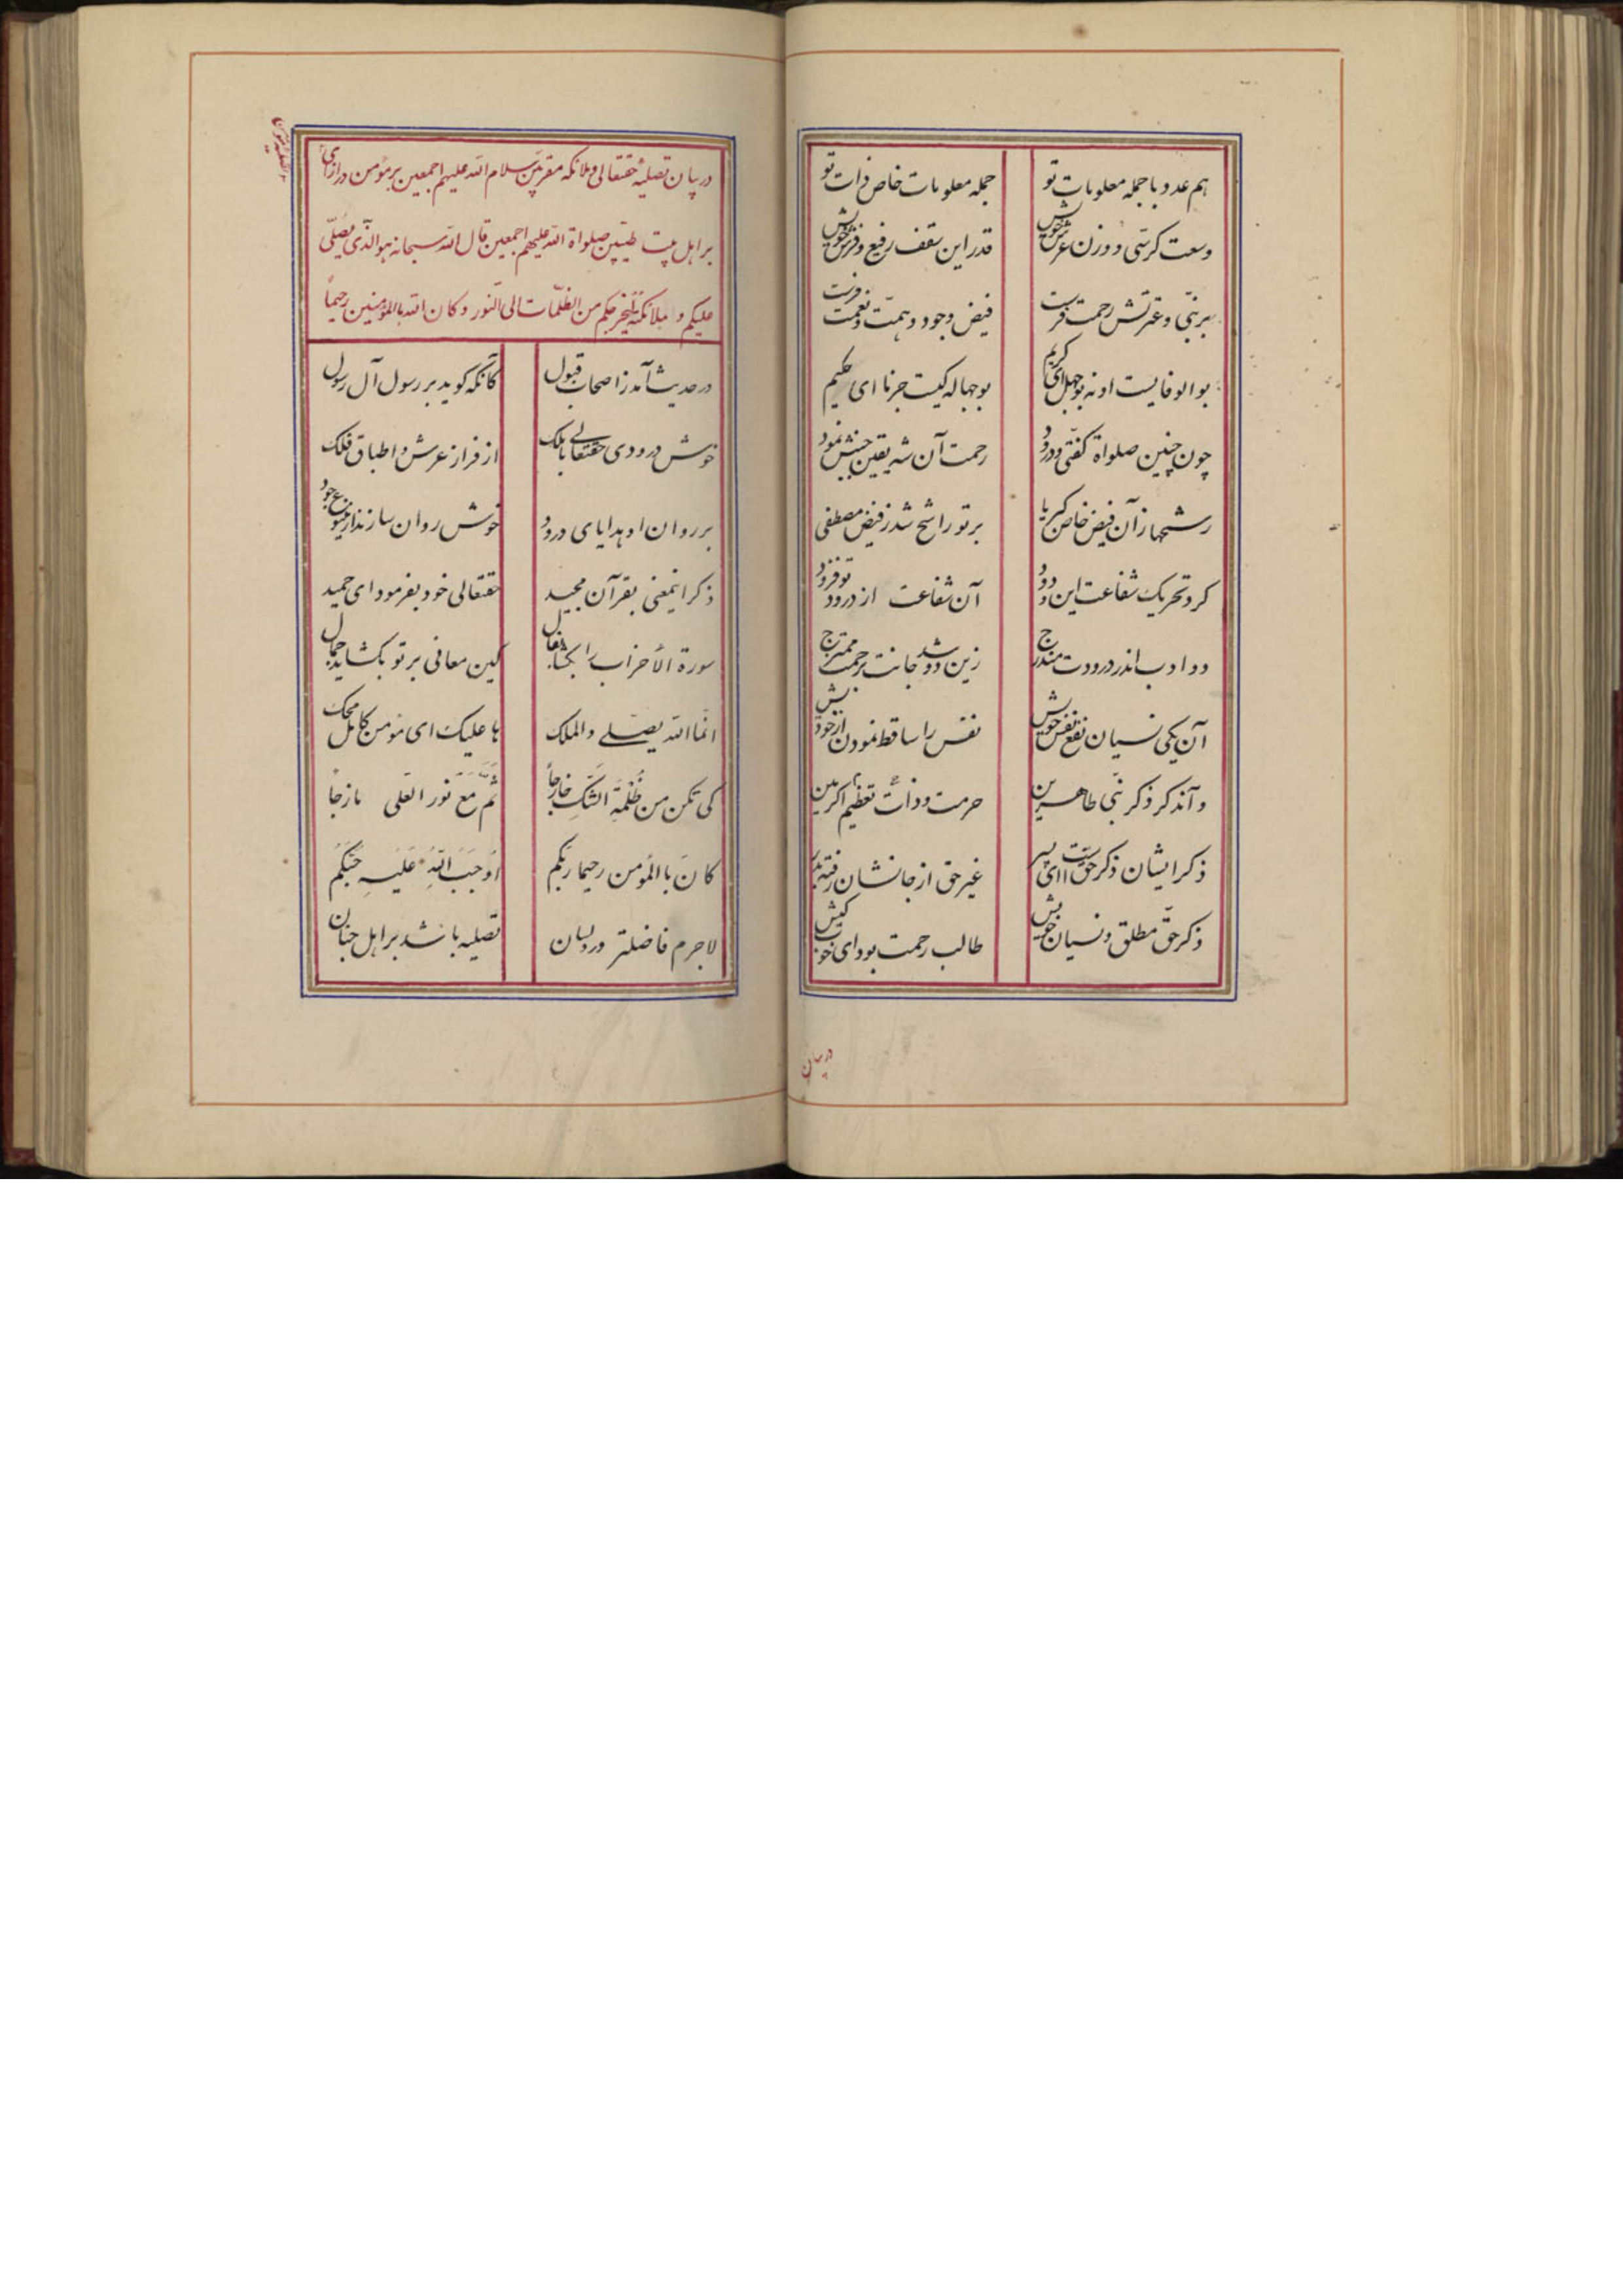 هم عدد با جمله معلومات تو جمله معلومات خاص ذات تو
وسعت کرسی و وزن عرش خویش قدر این سقف رفیع و فرش خویش
بر نبی و عترتش رحمت فرست فیض وجود و همت و نعمت فرست
بوالوفایست او نه بوجهل ای کریم بوجهاله کیست جز ما ای حکیم
چون چنین صلواة گفتی و درود رحمت آن شه یقین جنبش نمود
رشحها ز آن فیض خاص کبریا بر تو راشح شد ز فیض مصطفی
کرد تحریک شفاعت این درود آن شفاعت از درود تو فزود
دو ادب اندر درودت مندرج زین دو شد جانت برحمت ممتزج
آن یکی نسیان نفع نفس خویش نفس را ساقط نمودن از خود پیش
و آن دگر ذکر نبی طاهرین حرمت و دأب تعظیم اکرمین
ذکر ایشان ذکر حق است ای پسر غیر حق از جانشان رفته بدر
ذکر حق مطلق و نسیان خویش طالب رحمت بود ای خوب کیش
در بیان
در بیان تصلیهٔ حقتعالی و ملائکه مقربین سلام الله علیهم اجمعین بر مؤمن در ازای
بر اهل بیت طیبین صلواة الله علیهم اجمعین قال الله سبحانه هو الذی یصلی
علیکم و ملائکته لیخرجکم من الظلمات الی النور و کان الله بالمؤمنین رحیماً
در حدیث آمد ز اصحاب قبول کانکه گوید بر رسول آل رسول
خوش درودی حقتعالی با ملک از فراز عرش و اطباق فلک
بر روان او هدایای درود خوش روان سازند از ینبوع جود
ذکر اینمعنی بقرآن مجید حقتعالی خود بفرمود ای حمید
سورة الأحزاب را بگشا بفال کین معانی بر تو بگشاید جمال
انما الله یصلی والملک ها علیک ای مؤمن کامل محک
کی تکن من ظُلمَةِ الشَکِ خارجاً ثم مع نور العلی مازجاً
کانَ بالمؤمن رحیما ربکم اَوجَبَ اللّهُ عَلَیهِ حُبَّکُم
لاجرم فاضلتر ورد لسان تصلیه باشد بر اهل جنان